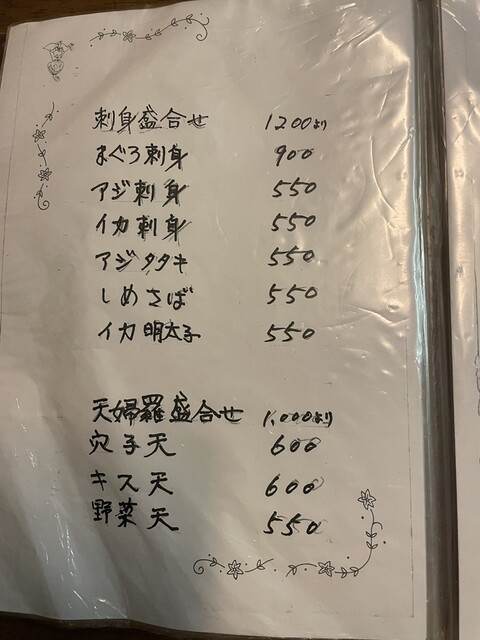 刺身盛合せ 1200より
まぐろ刺身 900
アジ刺身 550
イカ刺身 550
アジタタキ 550
しめさば 550
イカ明太子 550
天婦羅盛合せ 1,000より
穴子天 600
キス天 600
野菜天 550